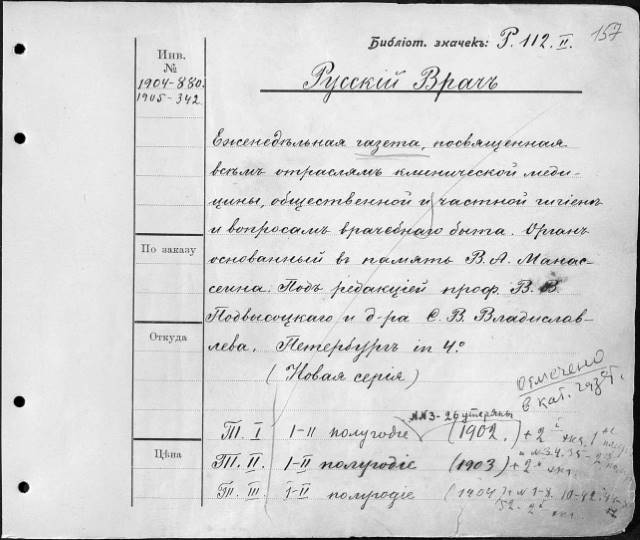 157
Библіот. значекъ: Р. 112. II.
Инв.
№
1904-880.
1905-342
Русскій Врачъ
Еженедѣльная газета, посвященная
всѣмъ отраслямъ клинической меди-
цины, общественной и частной гигіены
и вопросамъ врачебнаго быта. Органъ
основанный въ память В. А. Манас-
сеина. Подъ редакціей проф. В. В.
Подвысоцкаго и д-ра С. В. Владислав-
лева. Петербургъ in 4º
(Новая серія)
По заказу
Откуда
Цѣна
Отмечено
в кат. газет.
№№3-26 утеряны
Т. I I-II полугодіе (1902.) + 2 экз. 1
Т. II. I-II полугодіе (1903) + 2 экз.
Т. III. I-II полугодіе (1904) + № 1-8. 10-42.
52. 2 экз.